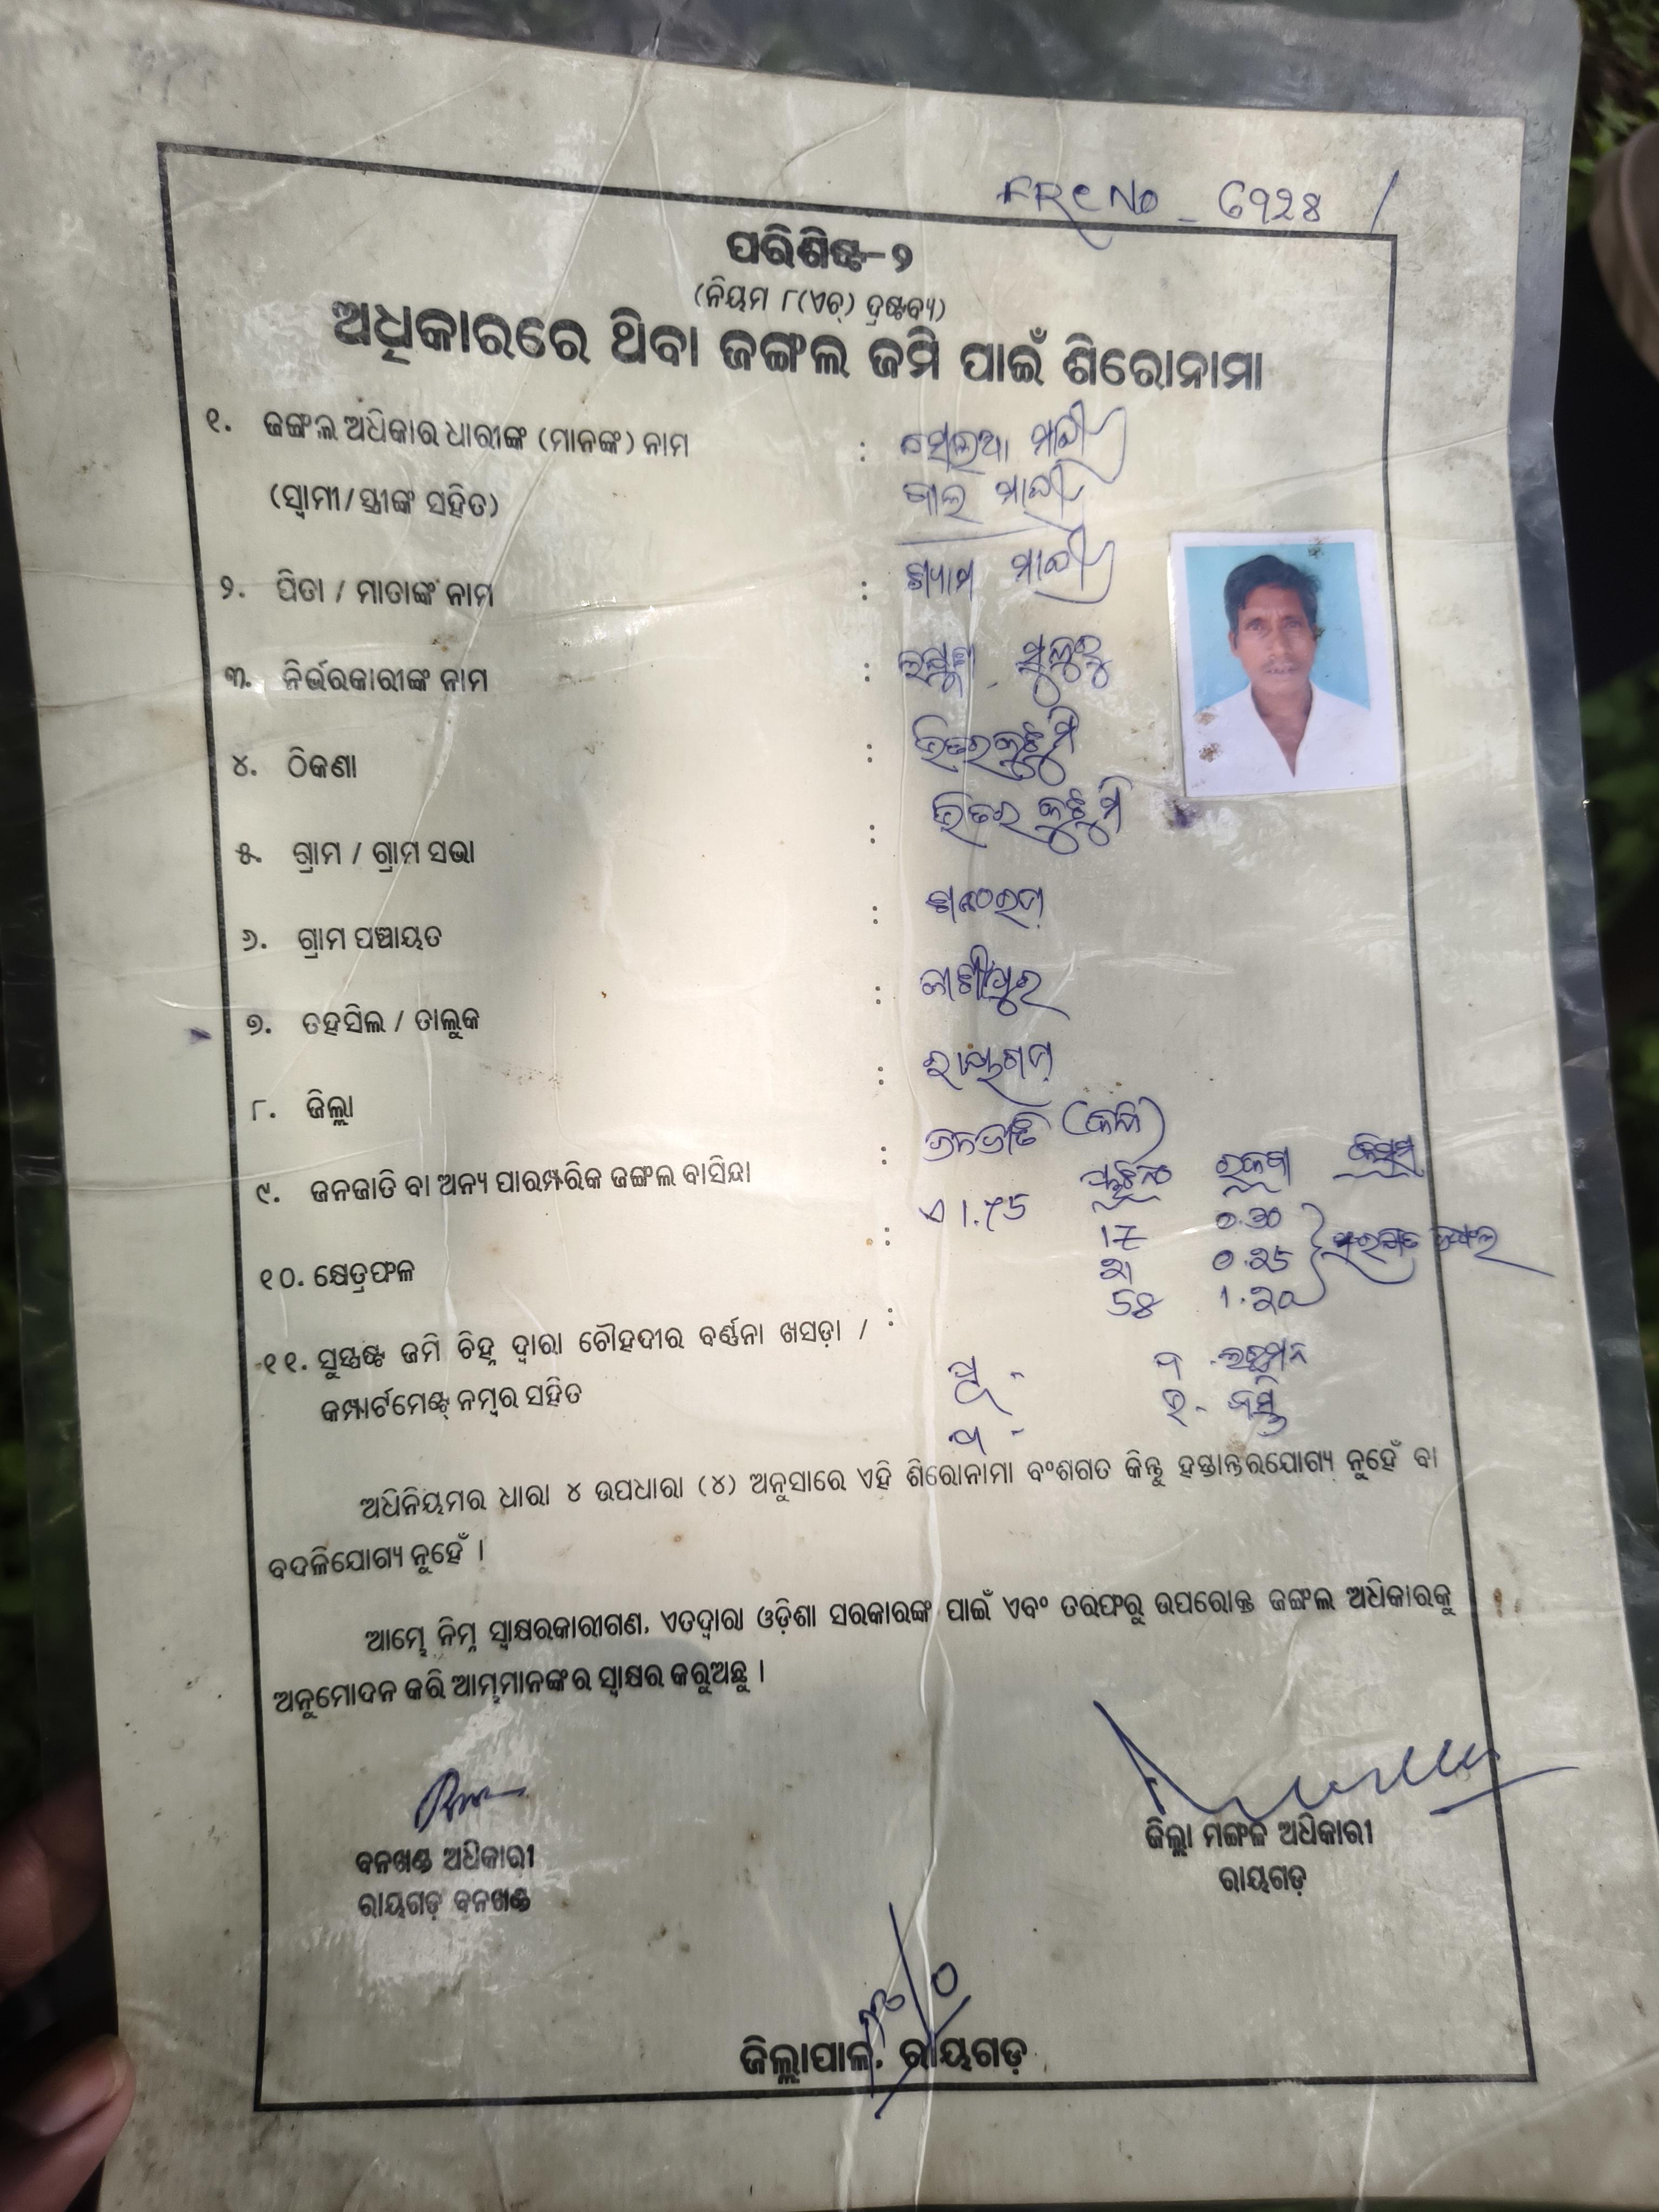 FRC No - 6724
ପରିଶିଷ୍ଟ-୨
(ନିୟମ ୮(ଏଚ୍) ଦ୍ରଷ୍ଟବ୍ୟ)
ଅଧିକାରରେ ଥିବା ଜଙ୍ଗଲ ଜମି ପାଇଁ ଶିରୋନାମା
୧. ଜଙ୍ଗଲ ଅଧିକାର ଧାରୀଙ୍କ (ମାନଙ୍କ) ନାମ : ମାଝୀ
(ସ୍ୱାମୀ/ସ୍ତ୍ରୀଙ୍କ ସହିତ) ମାଝୀ
୨. ପିତା / ମାତାଙ୍କ ନାମ : ଶ୍ୟାମ ମାଝୀ
୩. ନିର୍ଭରକାରୀଙ୍କ ନାମ :
୪. ଠିକଣା :
୫. ଗ୍ରାମ / ଗ୍ରାମ ସଭା : ଭିତର
୬. ଗ୍ରାମ ପଞ୍ଚାୟତ :
୭. ତହସିଲ / ତାଲୁକ : କାଶୀପୁର
୮. ଜିଲ୍ଲା : ରାୟଗଡ଼
୯. ଜନଜାତି ବା ଅନ୍ୟ ପାରମ୍ପରିକ ଜଙ୍ଗଲ ବାସିନ୍ଦା : ଜନଜାତି
ପ୍ଲଟନଂ ରକବା କିସମ
୧୦. କ୍ଷେତ୍ରଫଳ : ଏ 1.75 17 0.30
0.25
58 1.20
୧୧. ସୁସ୍ପଷ୍ଟ ଜମି ଚିହ୍ନ ଦ୍ୱାରା ଚୌହଦୀର ବର୍ଣ୍ଣନା ଖସଡ଼ା / :
କମ୍ପାର୍ଟମେଣ୍ଟ୍ ନମ୍ବର ସହିତ ପୂ - ଦ - ଲଛମନ
ପ - ଉ -
ଅଧିନିୟମର ଧାରା ୪ ଉପଧାରା (୪) ଅନୁସାରେ ଏହି ଶିରୋନାମା ବଂଶଗତ କିନ୍ତୁ ହସ୍ତାନ୍ତରଯୋଗ୍ୟ ନୁହେଁ ବା
ବଦଳିଯୋଗ୍ୟ ନୁହେଁ ।
ଆମ୍ଭେ ନିମ୍ନ ସ୍ୱାକ୍ଷରକାରୀଗଣ, ଏତଦ୍ୱାରା ଓଡ଼ିଶା ସରକାରଙ୍କ ପାଇଁ ଏବଂ ତରଫରୁ ଉପରୋକ୍ତ ଜଙ୍ଗଲ ଅଧିକାରକୁ
ଅନୁମୋଦନ କରି ଆମ୍ଭମାନଙ୍କର ସ୍ୱାକ୍ଷର କରୁଅଛୁ ।
ବନଖଣ୍ଡ ଅଧିକାରୀ
ରାୟଗଡ଼ ବନଖଣ୍ଡ
ଜିଲ୍ଲା ମଙ୍ଗଳ ଅଧିକାରୀ
ରାୟଗଡ଼
ଜିଲ୍ଲାପାଳ, ରାୟଗଡ଼